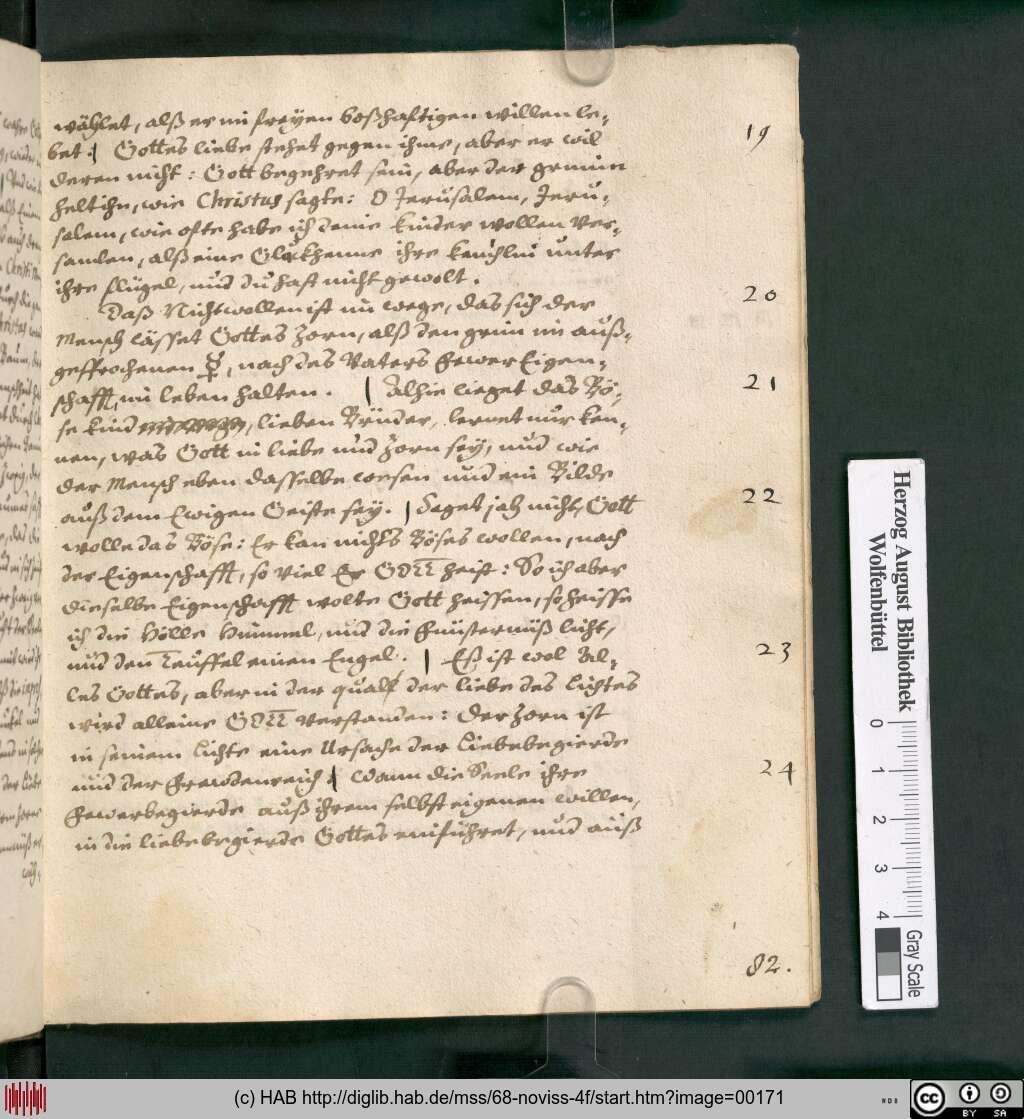 wählet, alß er im freyen boßhaftigen willen le-
bet. | Gottes liebe stehet gegen ihme, aber er wil 19
deren nicht: Gott begehret sein, aber der grimm
helt ihn, wie Christus sagte: O Jerusalem, Jeru-
salem, wie ofte habe ich deine kinder wollen ver-
samlen, alß eine Gluckhenne ihre keuchlin unter
ihre flügel, und du hast nicht gewolt.
Daß Nichtwollen ist im wege, das sich der 20
Mensch lässet Gottes Zorn, alß den grim im auß-
gesprochenen ☿, nach des Vaters Fewer Eigen-
schafft, im leben halten. | Alhie lieget das Bö- 21
se kind, lieben Brüder, lernet nur ken-
nen, was Gott in liebe und Zorn sey, und wie
der Mensch eben dasselbe wesen und ein Bilde
auß dem Ewigen Geiste sey. | Saget jah nicht, Gott 22
wolle das Böse: Er kan nichts Böses wollen, nach
der Eigenschafft, so viel Er GOTT heist: So ich aber
dieselbe Eigenschafft wolte Gott heissen, so heisse
ich die Hölle Himmel, und die Finsternüß licht,
und den Teuffel einen Engel. | Eß ist wol Al- 23
les Gottes, aber in der qualf der liebe des Lichtes
wird alleine GOTT verstanden: der Zorn ist
in seinem Lichte eine Ursache der Liebebegierde
und der Frewdenreich. | Wann die Seele ihre 24
Fewerbegierde auß ihrem selbst eigenen willen,
in die liebebegierde Gottes einführet, und auß
82.
Herzog August Bibliothek
Wolfenbüttel
0 1 2 3 4
Gray Scale
(c) HAB http://diglib.hab.de/mss/68-noviss-4f/start.htm?image=00171
cc BY SA